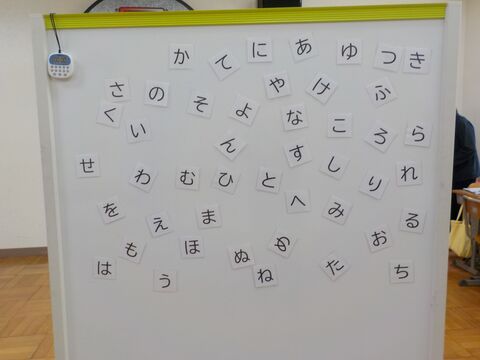 か て に あ ゆ つ き
さ の そ や け ふ
く い よ な こ ろ ら
ん す し
せ わ む ひ と り れ
を え ま へ み る
も ほ ぬ め お
は う ね た ち